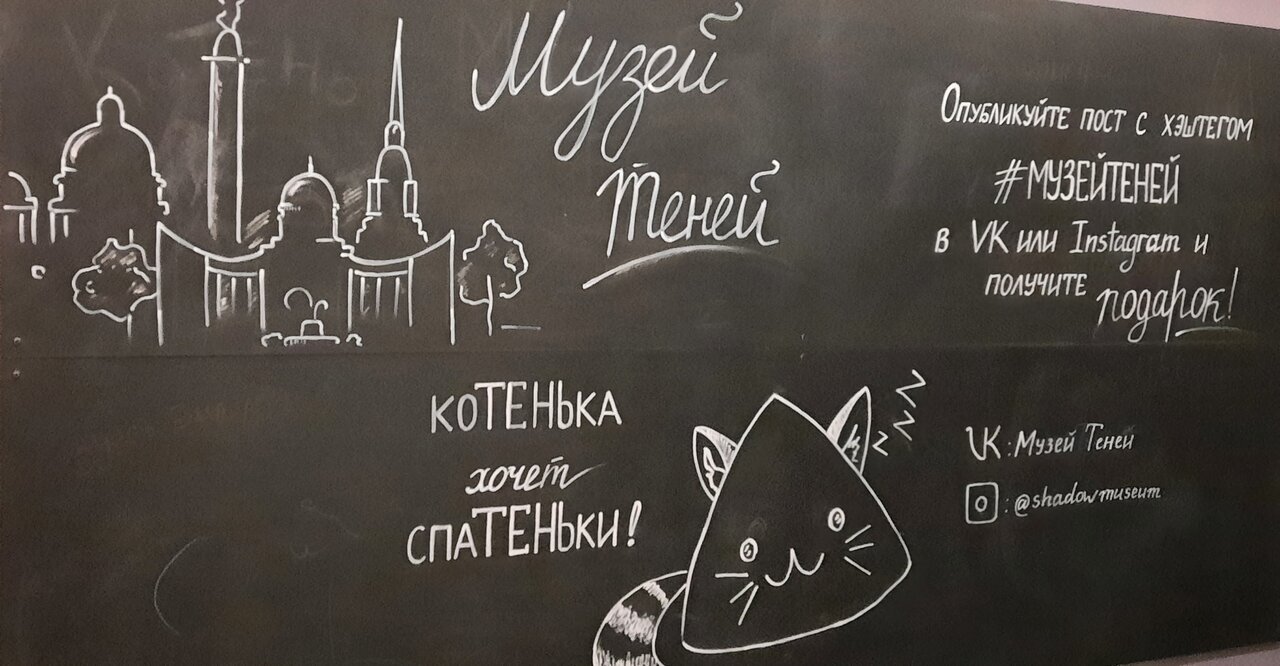 Музей
Теней
Опубликуйте пост с хэштегом
#МУЗЕЙТЕНЕЙ
в VK или Instagram и
получите подарок!
коТЕНЬка
хочет
спаТЕНЬки!
z z z
VK: Музей Теней
: @shadowmuseum